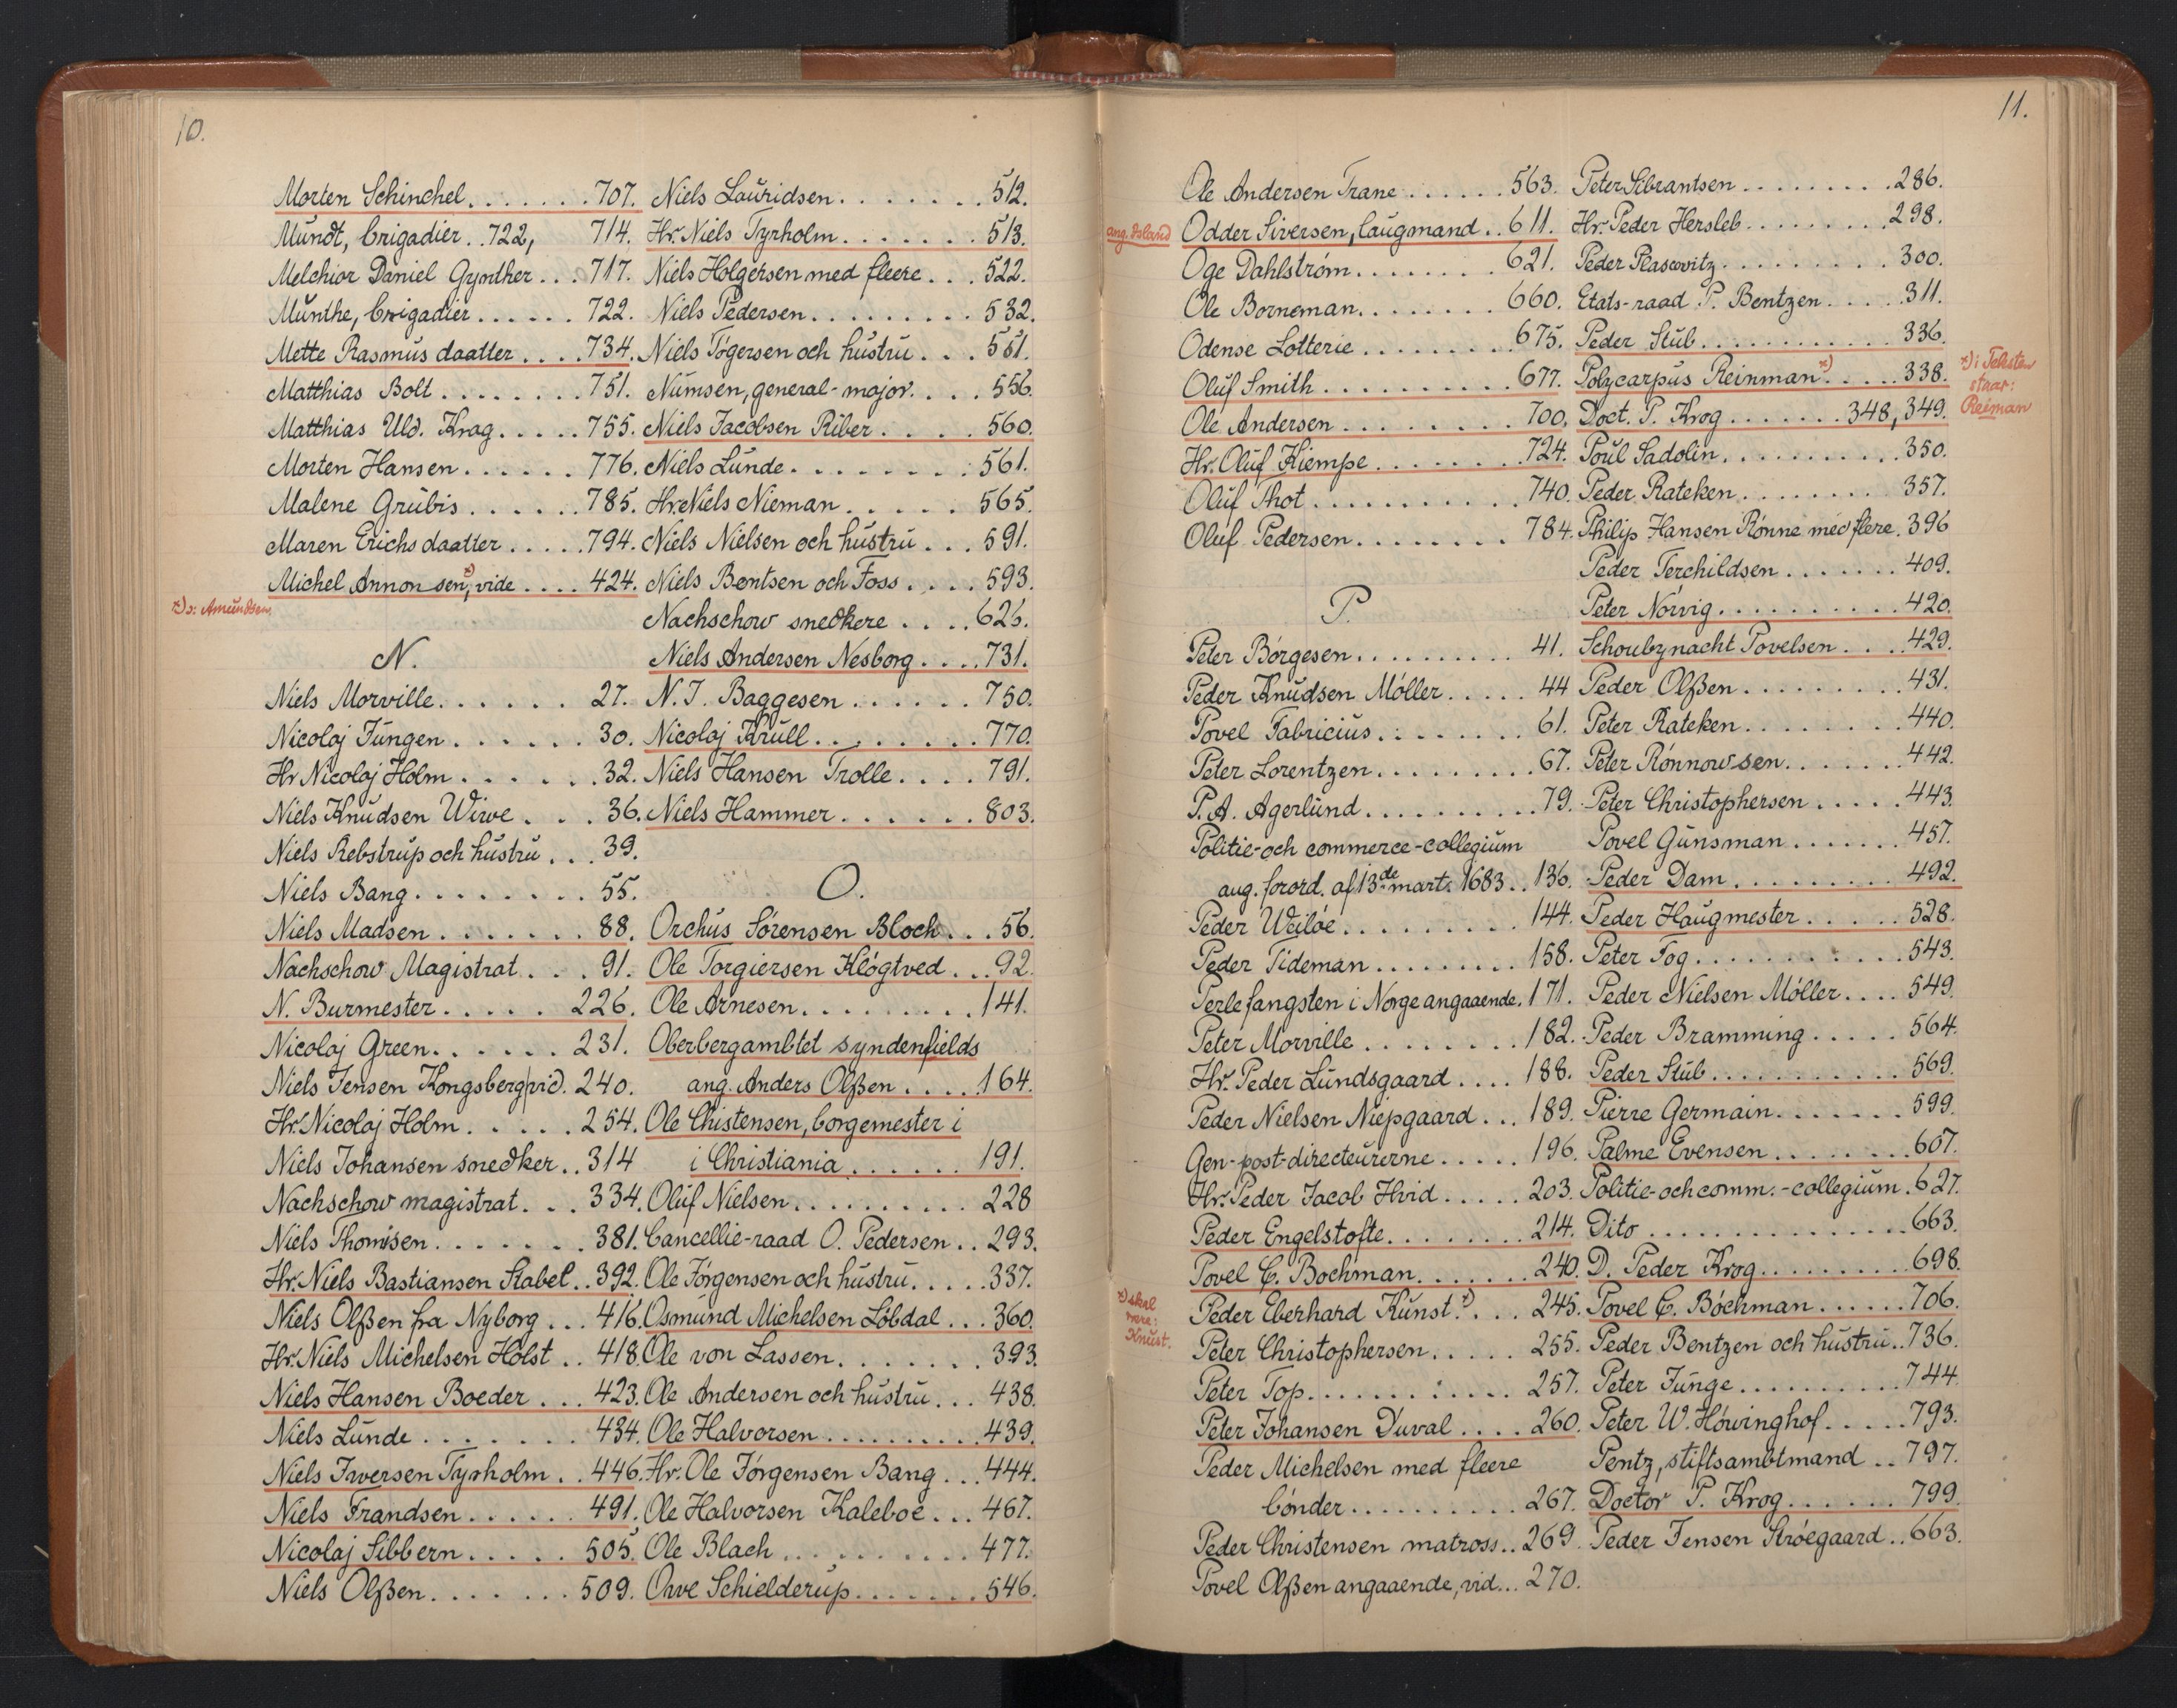 10.
Morten Schinchel. . . . . . . 707.
Mundt, brigadier. . 722, 714.
Melchior Daniel Gynther . . . 717.
Munthe, brigadier . . . . . . 722.
Mette Rasmus daatter . . . . 734.
Matthias Bolt . . . . . . . . 751.
Matthias Uld. Krag. . . . . 755.
Morten Hansen . . . . . . 776.
Malene Grubis . . . . . . 785.
Maren Erichs daatter . . . . . 794.
Michel Annon sen,*) vide . . . . 424.
*) o: Amundsen.
N.
Niels Morville. . . . . . 27.
Nicolaj Jungen . . . . . . 30.
Hr Nicolaj Holm . . . . . . 32.
Niels Knudsen Wirve . . . 36.
Niels Rebstrup och hustru . . . 39.
Niels Bang. . . . . . . . 55.
Niels Madsen . . . . . . . 88.
Nachschow Magistrat . . . 91.
N. Burmester . . . . . 226.
Nicolaj Green. . . . . . 231.
Niels Jensen Kongsberg vid. 240.
Hr. Nicolaj Holm . . . . . 254.
Niels Johansen snedker . . 314
Nachschow magistrat. . . 334.
Niels Thomsen. . . . . . . 381.
Hr. Niels Bastiansen Stabel . . 392.
Niels Olßen fra Nyborg . . . 416.
Hr. Niels Michelsen Holst . . 418.
Niels Hansen Boeder . . . 423.
Niels Lunde . . . . . . . 434.
Niels Iwersen Tyrholm . . 446.
Niels Frandsen . . . . . . 491.
Nicolaj Sibbern. . . . . 505.
Niels Olßen. . . . . . . 509.
Niels Lauridsen. . . . . . . . 512.
Hr. Niels Tyrholm. . . . . . . 513.
Niels Holgersen med fleere. . . 522.
Niels Pedersen. . . . . . . . . 532.
Niels Tögersen och hustru . . . 551.
Numsen, general-major. . . . 556.
Niels Jacobsen Riber . . . . 560.
Niels Lunde. . . . . . . . 561.
Hr. Niels Nieman . . . . . 565.
Niels Nielsen och hustru . . . 591.
Niels Bentsen och Foss . . . . 593.
Nachschow snedkere . . . . 626.
Niels Andersen Nesborg . . . . 731.
N. J. Baggesen . . . . . . 750.
Nicolaj Krull. . . . . . . . 770.
Niels Hansen Trolle. . . . 791.
Niels Hammer. . . . . . . 803.
O.
Orchus Sörensen Bloch . . . 56.
Ole Torgiersen Klögtved . . . 92.
Ole Arnesen. . . . . . . . . 141.
Oberbergambtet syndenfields
ang. Anders Olßen . . . . 164.
Ole Chistensen, borgemester i
i Christiania . . . . . . 191.
Oluf Nielsen . . . . . . . . . . 228
Cancellie-raad O. Pedersen . . 293.
Ole Jörgensen och hustru. . . . . 337.
Osmund Michelsen Löbdal . . . 360.
Ole von Lassen. . . . . . . 393.
Ole Andersen och hustru. . . 438.
Ole Halvorsen . . . . . . . . . 439.
Hr. Ole Jörgensen Bang . . . 444.
Ole Halvorsen Kaleboe . . . 467.
Ole Blach . . . . . . . . . . 477.
Owe Schielderup . . . . . . 546.
11.
Ole Andersen Trane . . . . . . 563.
ang. Island
Odder Siversen, laugmand . . 611.
Oge Dahlström. . . . . . . . 621.
Ole Borneman. . . . . . . . 660.
Odense Lotterie . . . . . . . . . 675.
Oluf Smith . . . . . . . . . . 677.
Ole Andersen . . . . . . . . . 700.
Hr. Oluf Kiempe . . . . . . . . 724.
Oluf Thot . . . . . . . . . . . 740.
Oluf Pedersen. . . . . . . . 784.
P.
Peter Börgesen. . . . . . . . . 41.
Peder Knudsen Möller . . . . . 44
Povel Fabricius. . . . . . . . 61.
Peter Lorentzen. . . . . . . . . 67.
P. A. Agerlund. . . . . . . . . . 79.
Politie-och commerce-collegium
ang. forord. af 13de mart. 1683 . . 136.
Peder Weilöe. . . . . . . . . 144.
Peder Tideman . . . . . . . . . 158.
Perlefangsten i Norge angaaende. 171.
Peter Morville . . . . . . . . 182.
Hr. Peder Lundsgaard . . . . 188.
Peder Nielsen Niepsgaard . . . 189.
Gen-post-directeurerne . . . . . 196.
Hr. Peder Jacob Hvid . . . . . 203.
Peder Engelstofte. . . . . . . . 214.
Povel C. Bochman. . . . . . . 240.
Peder Eberhard Kunst.*) . . . 245.
*) skal
være:
Knust.
Peter Christophersen . . . . . 255.
Peter Top. . . . . . . . . . . 257.
Peter Johansen Duval . . . . 260.
Peder Michelsen med fleere
bönder . . . . . . . . . . 267.
Peder Christensen matross. . 269.
Povel Olßen angaaende, vid. . . 270.
Peter Sibrantsen . . . . . . . . . 286.
Hr. Peder Hersleb . . . . . . . . . 298.
Peder Plascovitz. . . . . . . . . . 300.
Etats-raad P. Bentzen . . . . . 311.
Peder Stub. . . . . . . . . . . . 336.
Polycarpus Reinman*). . . . . 338.
*) i Teksten
staar:
Reiman
Doct. P. Krog . . . . . . . 348, 349.
Poul Sadolin. . . . . . . . . . . 350.
Peder Rateken. . . . . . . . 357.
Philip Hansen Rönne med flere. 396
Peder Terchildsen . . . . . . . 409.
Peter Nörvig. . . . . . . . . . . 420.
Schoubynacht Povelsen . . . . 429.
Peder Olßen . . . . . . . . . 431.
Peter Rateken. . . . . . . . . 440.
Peter Rönnowsen. . . . . . . 442.
Peter Christophersen . . . . . 443.
Povel Gunsman . . . . . . . 457.
Peder Dam . . . . . . . . . 492.
Peder Haugmester . . . . . 528.
Peter Fog. . . . . . . . . . . 543.
Peder Nielsen Möller . . . . 549.
Peder Bramming . . . . . 564.
Peder Stub. . . . . . . . . . . 569.
Pierre Germain. . . . . . . 599.
Palme Evensen . . . . . . . . 607.
Politie-och comm.-collegium . 627.
Dito . . . . . . . . . . . . . . . 663.
D. Peder Krog. . . . . . . . . . 698.
Povel C. Böchman . . . . . . 706.
Peder Bentzen och hustru . . 736.
Peter Junge . . . . . . . . . . 744.
Peter W. Höwinghof . . . . . 793.
Pentz, stiftsambtmand . . 797.
Doctor P. Krog . . . . . . 799.
Peder Jensen Ströegaard . . 663.